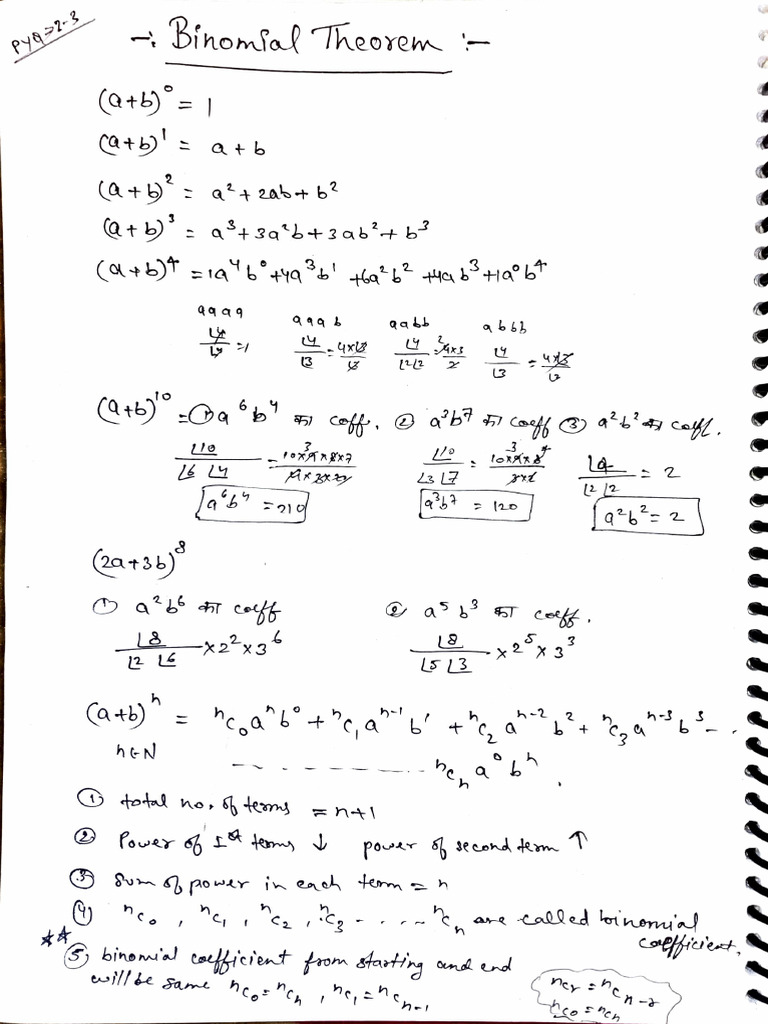 PYQ⇒2-3
-: Binomial Theorem :-
(a+b)⁰ = 1
(a+b)¹ = a+b
(a+b)² = a²+2ab+b²
(a+b)³ = a³+3a²b+3ab²+b³
(a+b)⁴ = 1a⁴b⁰+4a³b¹+6a²b²+4ab³+1a⁰b⁴
aaaa aaab aabb abbb
∟4/∟4 = 1 ∟4/∟3 = 4×∟3/∟3 ∟4/∟2∟2 = 4×3/2 ∟4/∟3 = 4×∟3/∟3
(a+b)¹⁰ = ① a⁶b⁴ का coff. ② a³b⁷ का coeff ③ a²b² का coeff.
∟10/∟6 ∟4 = 10×9×8×7/4×3×2 ∟10/∟3 ∟7 = 10×9×8/3×2 ∟4/∟2 ∟2 = 2
a⁶b⁴ = 210 a³b⁷ = 120 a²b² = 2
(2a+3b)⁸
① a²b⁶ का coeff ② a⁵b³ का coeff.
∟8/∟2 ∟6 ×2²×3⁶ ∟8/∟5 ∟3 ×2⁵×3³
(a+b)ⁿ = ⁿc₀aⁿb⁰+ⁿc₁aⁿ⁻¹b¹+ⁿc₂aⁿ⁻²b²+ⁿc₃aⁿ⁻³b³- - -
n∈N - - - - - - - - ⁿcₙa⁰bⁿ.
① total no. of terms = n+1
② Power of 1st terms ↓ power of second term ↑
③ Sum of power in each term = n
④ ⁿc₀, ⁿc₁, ⁿc₂, ⁿc₃ - - . . - - ⁿcₙ are called binomial
coefficient.
☆☆
⑤ binomial coefficient from starting and end
will be same ⁿc₀=ⁿcₙ, ⁿc₁=ⁿcₙ₋₁
ⁿcᵣ = ⁿcₙ₋ᵣ
ⁿc₀ = ⁿcₙ